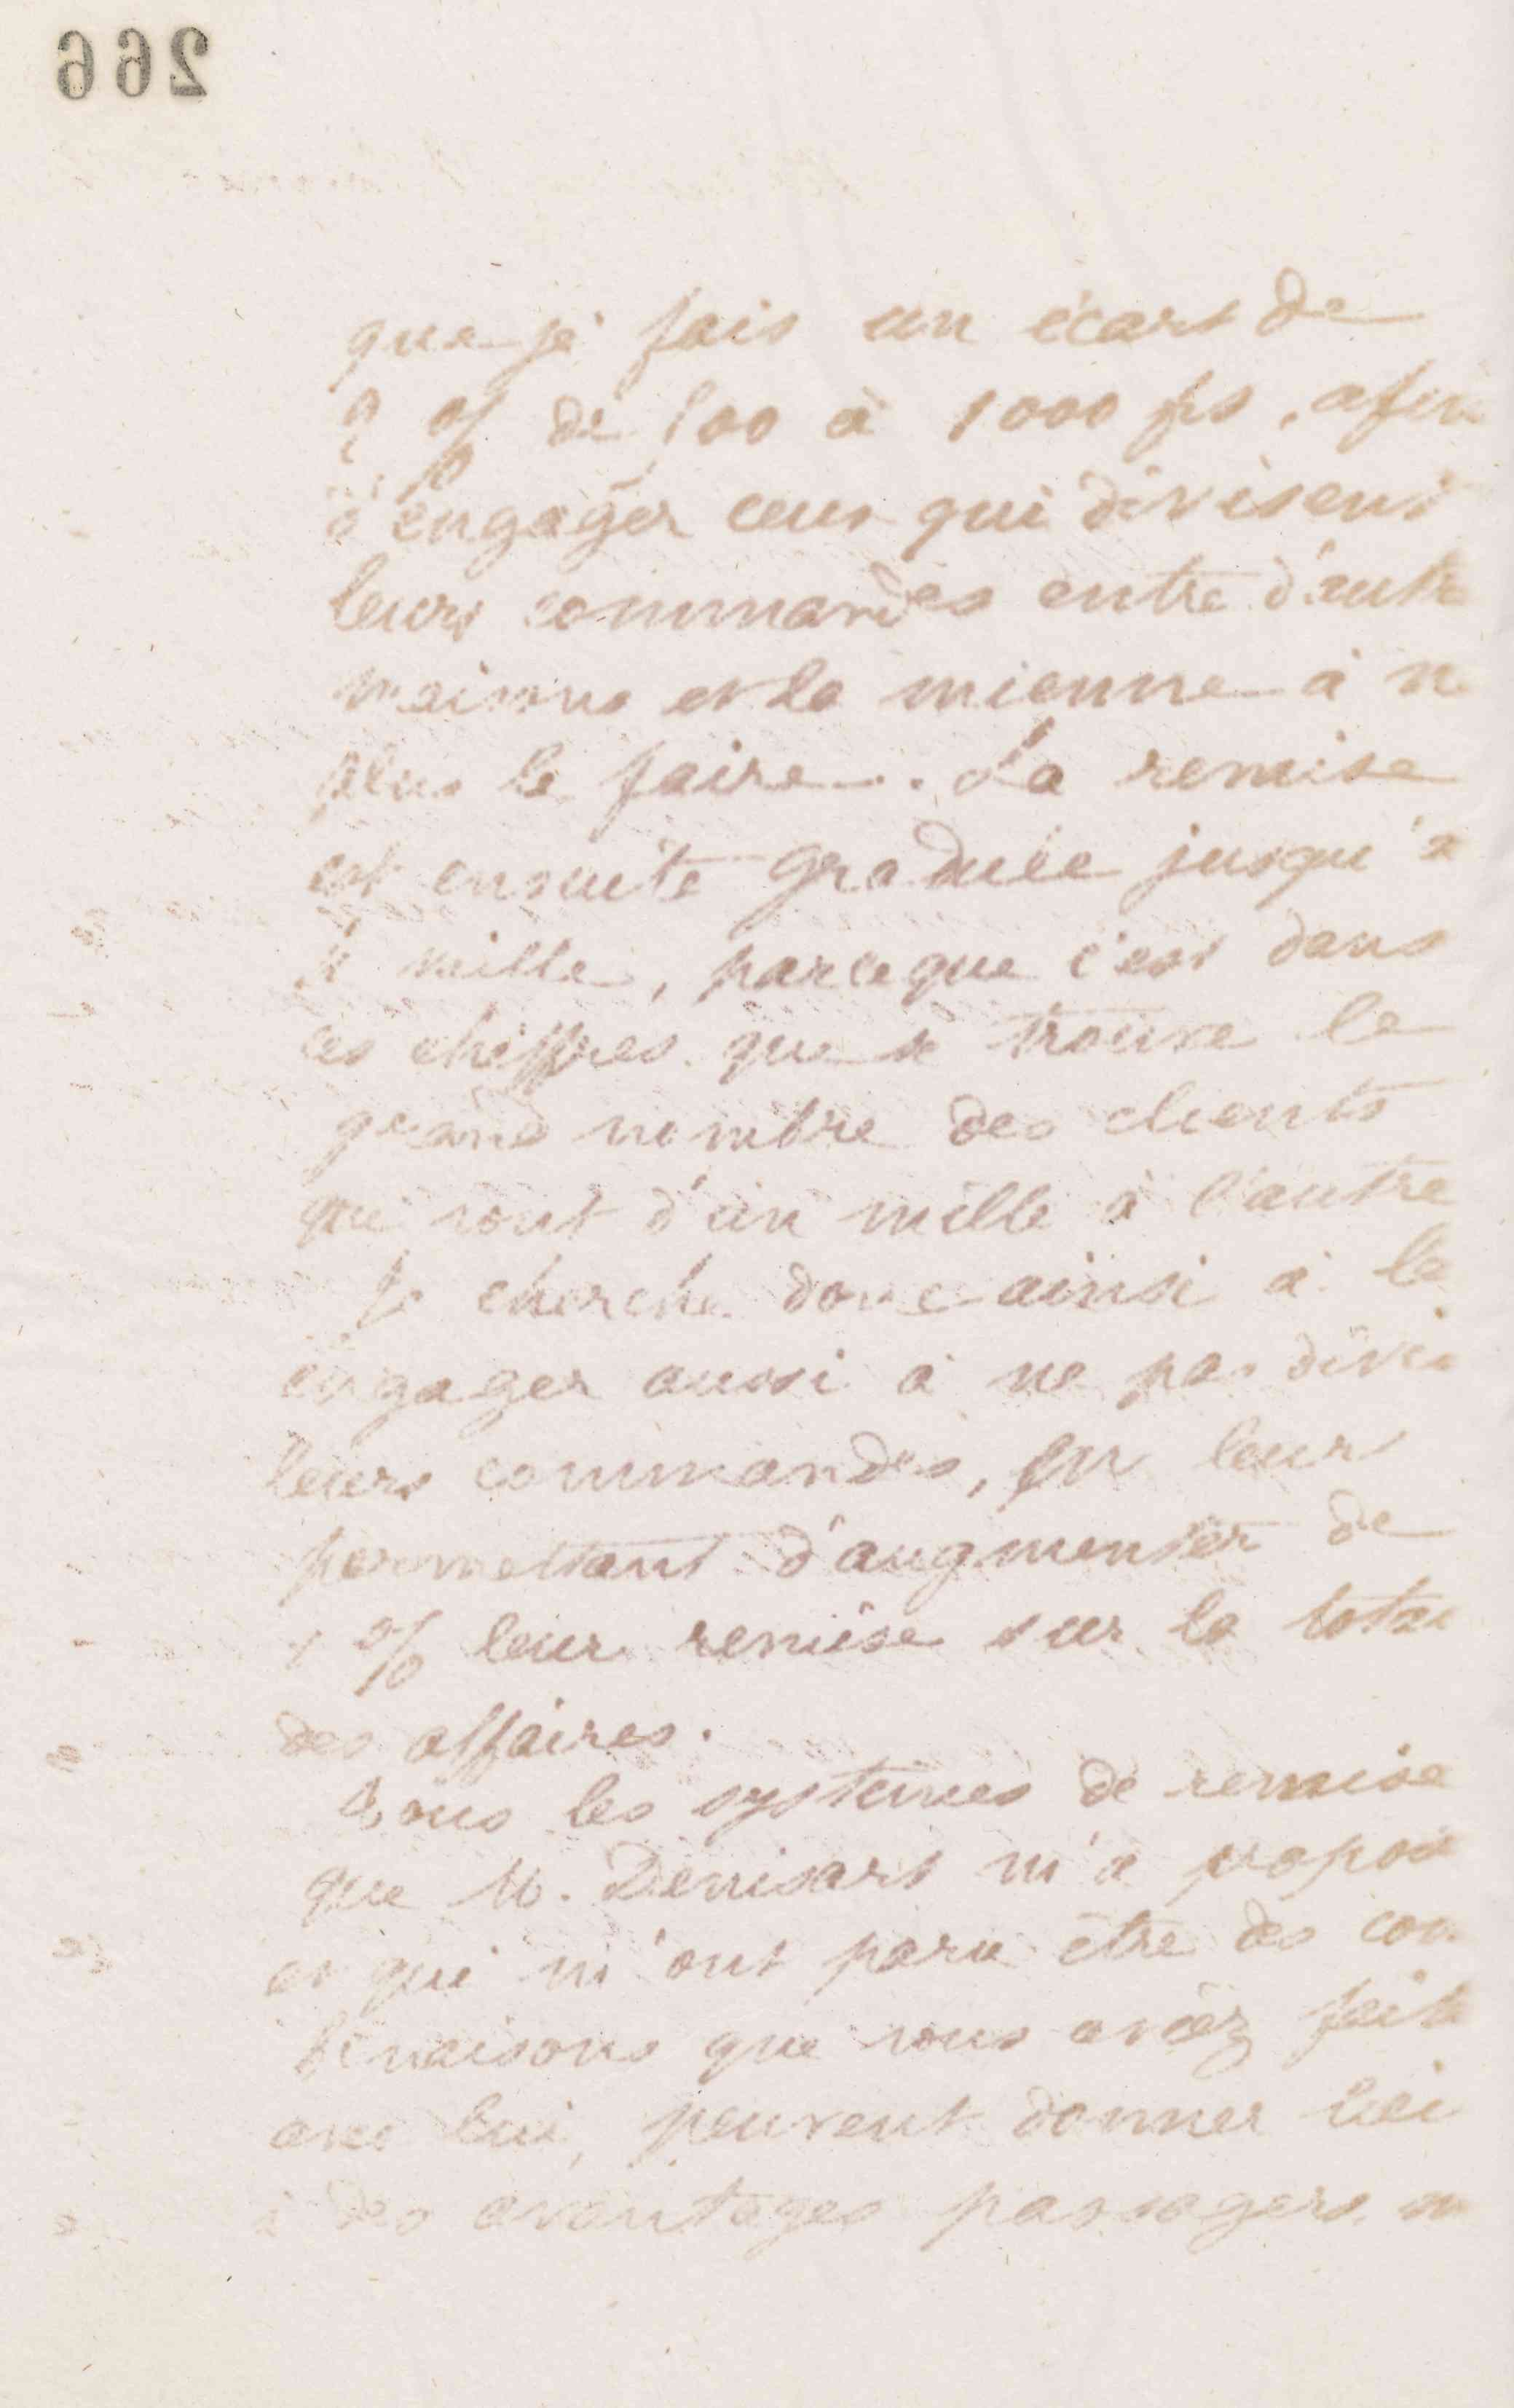 266
que je fais un écart de
% de 500 à 1000 fs, afin
d'engager ceux qui divisent
leurs commandes entre d'autre
maisons et la mienne à ne
plus le faire. La remise
est ensuite graduée jusqu'à
mille, parceque c'est dans
ces chiffres que se trouve le
grand nombre des clients
qui vont d'un mille à l'autre
Je cherche donc ainsi à le
engager aussi à ne pas divi
leurs commandes, en leur
permettant d'augmenter de
1 % leur remise sur le total
des affaires.
Tous les systèmes de remise
que M. Denisart m'a proposé
et qui m'ont paru être des com
binaisons que vous aviez faite
avec lui, peuvent donner lieu
à des avantages passagers, m